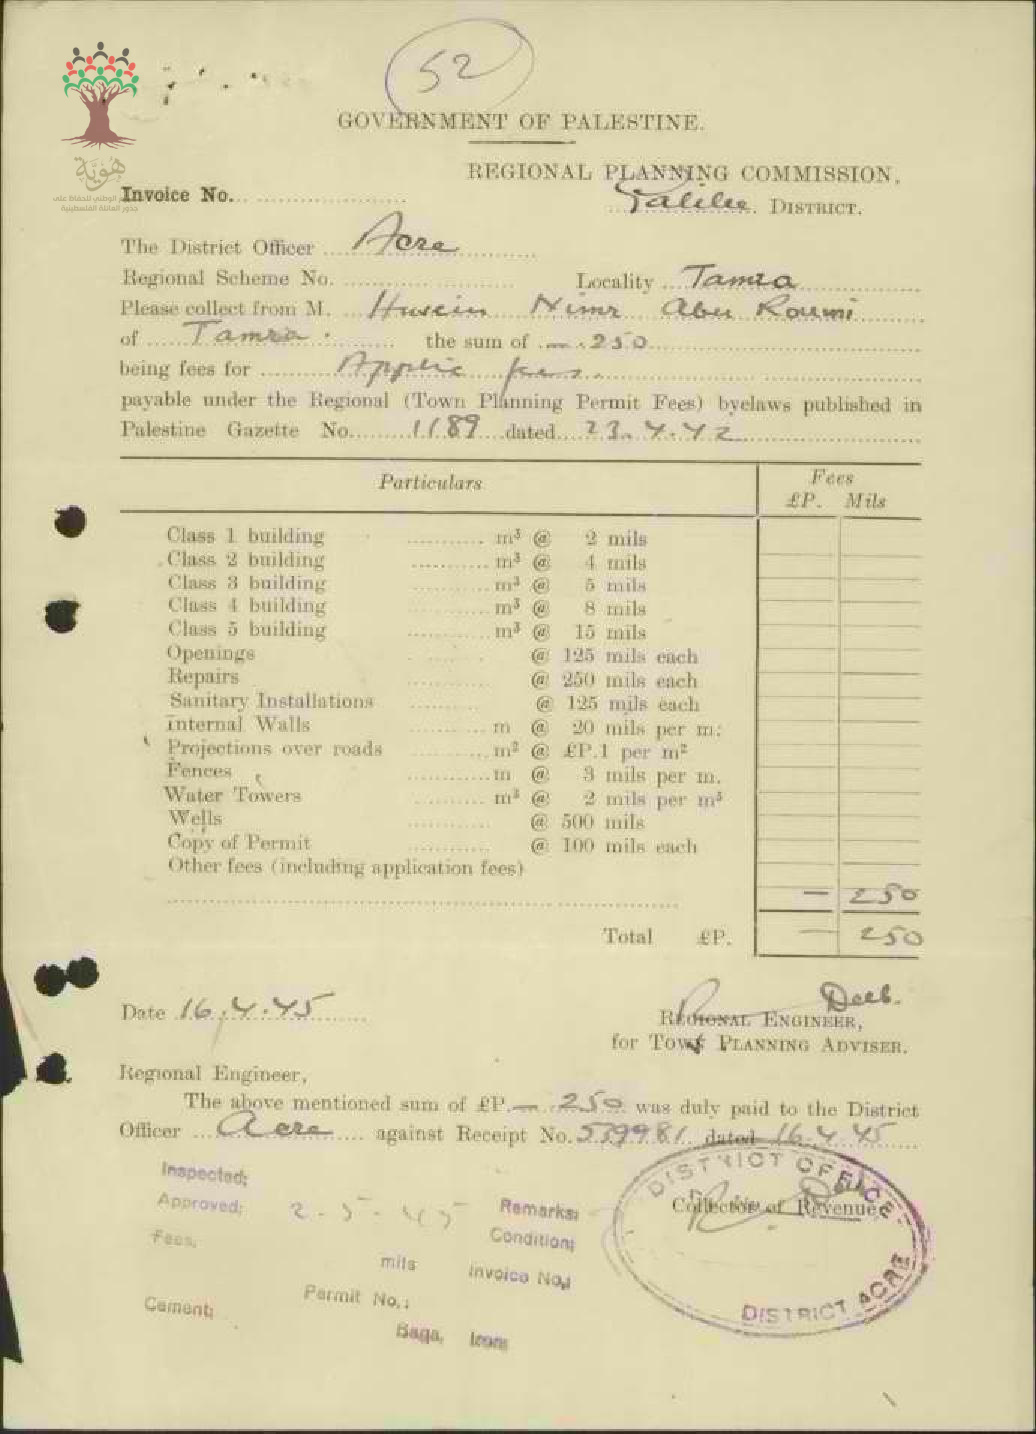 52
GOVERNMENT OF PALESTINE.
REGIONAL PLANNING COMMISSION,
هَوِيَّة
الوطني للحفاظ على
جذور العائلة الفلسطينية
Invoice No. Galilee DISTRICT.
The District Officer Acre
Regional Scheme No. Locality Tamra
Please collect from M. Husein Nimr Abu Roumi
of Tamra. the sum of —.250
being fees for Applic fees.
payable under the Regional (Town Planning Permit Fees) byelaws published in
Palestine Gazette No. 1189 dated 23.4.42
Particulars Fees
£P. Mils
Class 1 building m³ @ 2 mils
Class 2 building m³ @ 4 mils
Class 3 building m³ @ 5 mils
Class 4 building m³ @ 8 mils
Class 5 building m³ @ 15 mils
Openings @ 125 mils each
Repairs @ 250 mils each
Sanitary Installations @ 125 mils each
Internal Walls m @ 20 mils per m:
Projections over roads m² @ £P.1 per m²
Fences m @ 3 mils per m.
Water Towers m³ @ 2 mils per m³
Wells @ 500 mils
Copy of Permit @ 100 mils each
Other fees (including application fees)
— 250
Total £P. — 250
Date 16.4.45
REGIONAL ENGINEER,
for TOWN PLANNING ADVISER.
Regional Engineer,
The above mentioned sum of £P. — 250 was duly paid to the District
Officer Acre against Receipt No. 539981 dated 16.4.45
DISTRICT OFFICE
Collector of Revenue
DISTRICT ACRE
Inspected;
Approved; 2-5-45 Remarks:
Fees. Condition;
mils Invoice No.;
Permit No.:
Cement; Bags, Iron;